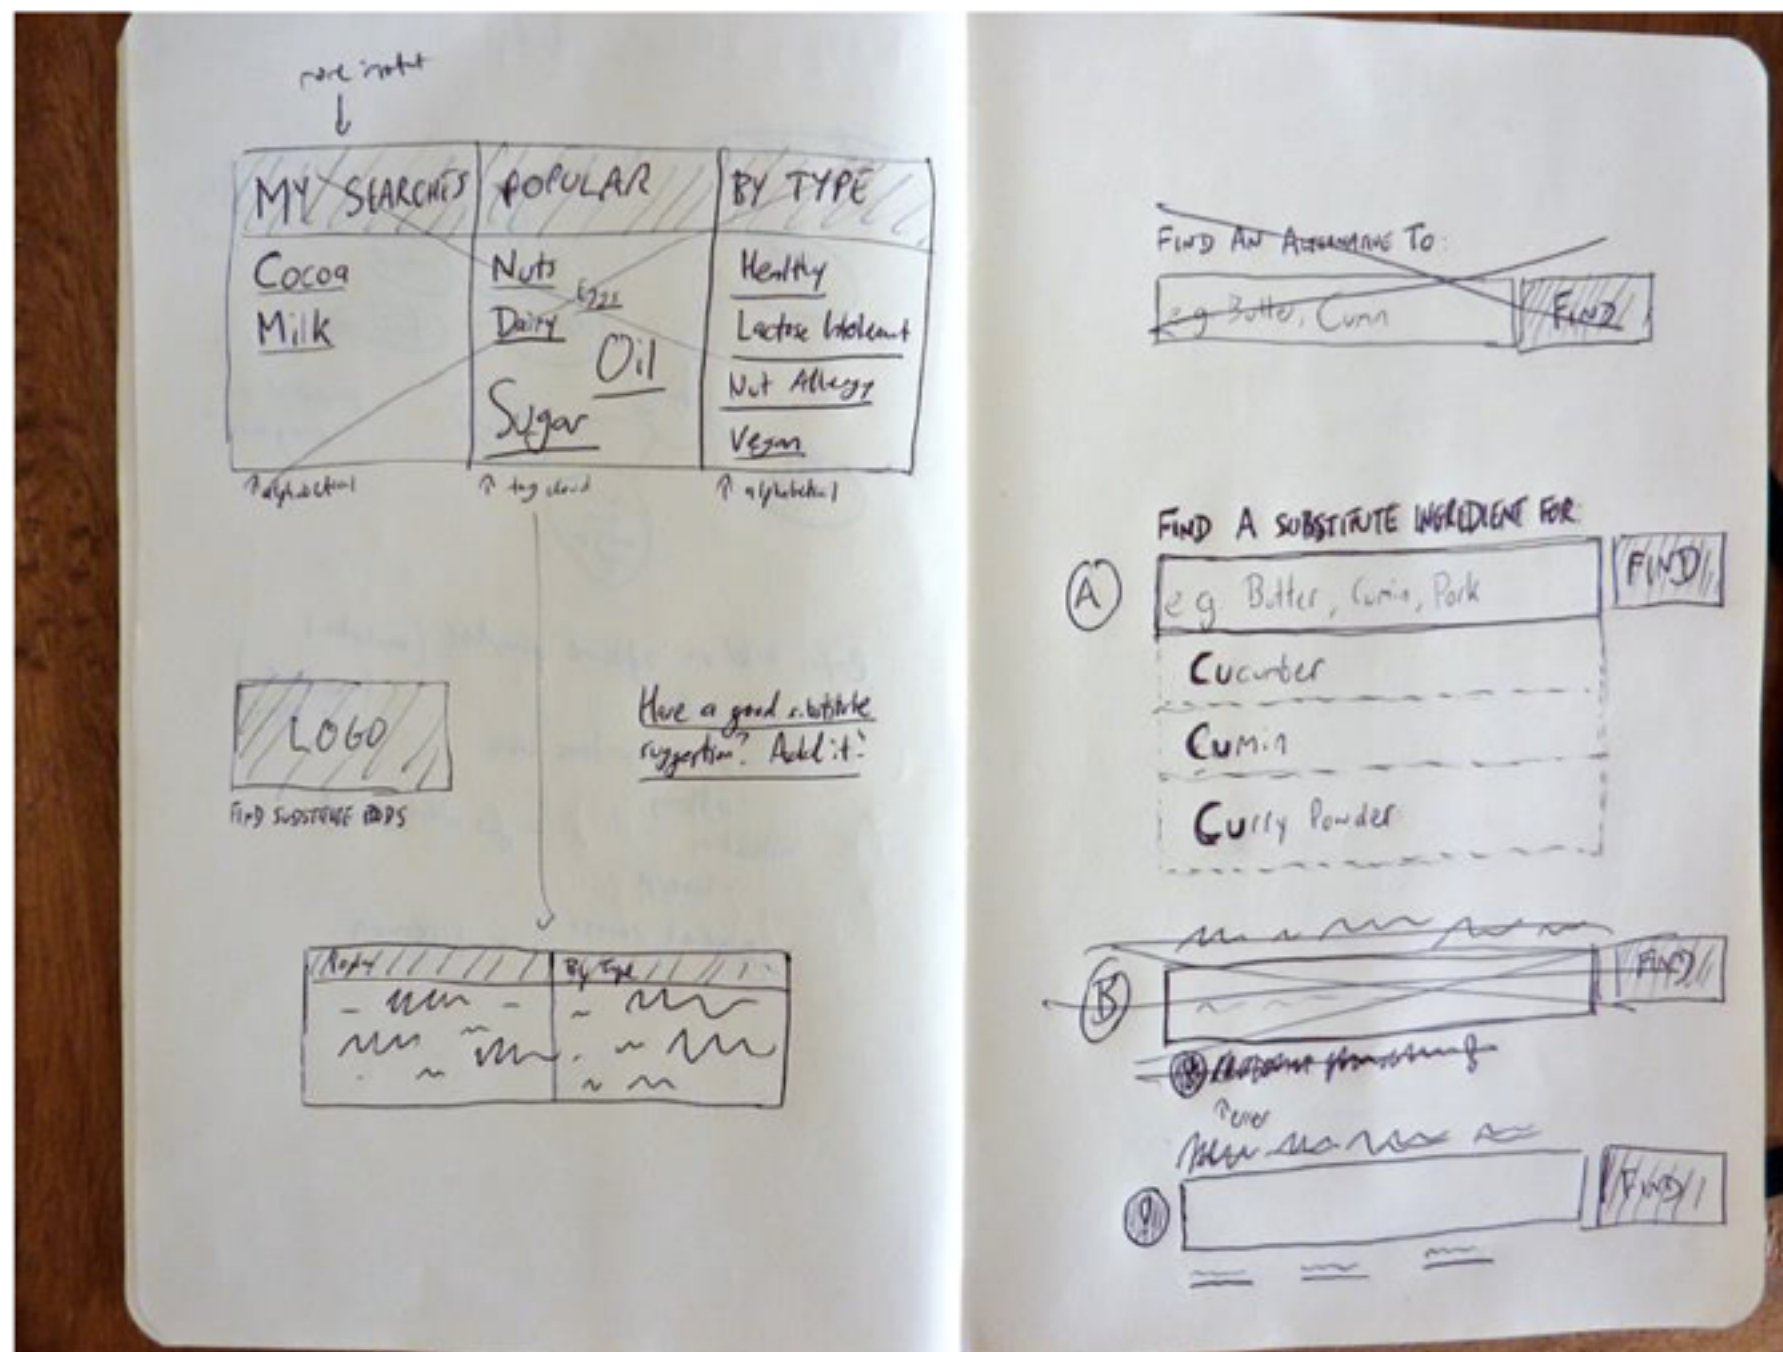 MY SEARCHES
POPULAR
BY TYPE
Cocoa
Milk
Nuts
Eggs
Dairy
Oil
Sugar
Healthy
Lactose Intolerant
Nut Allergy
Vegan
↑ alphabetical
↑ tag cloud
↑ alphabetical
LOGO
FIND SUBSTITUTE FOODS
Have a good substitute
suggestion? Add it!
By Type
FIND AN ALTERNATIVE TO:
e.g Butter, Cumin
FIND
FIND A SUBSTITUTE INGREDIENT FOR:
A
e.g. Butter, Cumin, Pork
FIND
Cucumber
Cumin
Curry Powder
B
FIND
↑ error
!
FIND